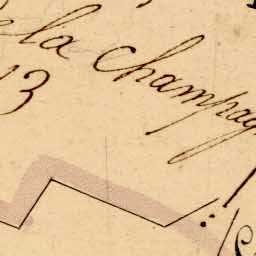 de la Champagn
13